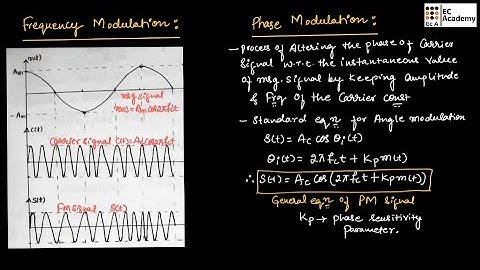 Frequency Modulation:
m(t)
Am
- Am
msg signal
m(t) = Am cos2πfmt
C(t)
Carrier Signal C(t)=Ac cos2πfct
S(t)
FM Signal S(t)
Phase Modulation:
EC Academy
Ec A
- Process of Altering the phase of Carrier
Signal w.r.t the instantaneous value
of msg. Signal by keeping Amplitude
& Frq of the Carrier const
- Standard eqn for Angle modulation
S(t) = Ac cos θi(t)
θi(t) = 2πfct + Kp m(t)
∴ S(t) = Ac cos(2πfct + Kp m(t))
General eqn of PM Signal
Kp → phase sensitivity
Parameter.